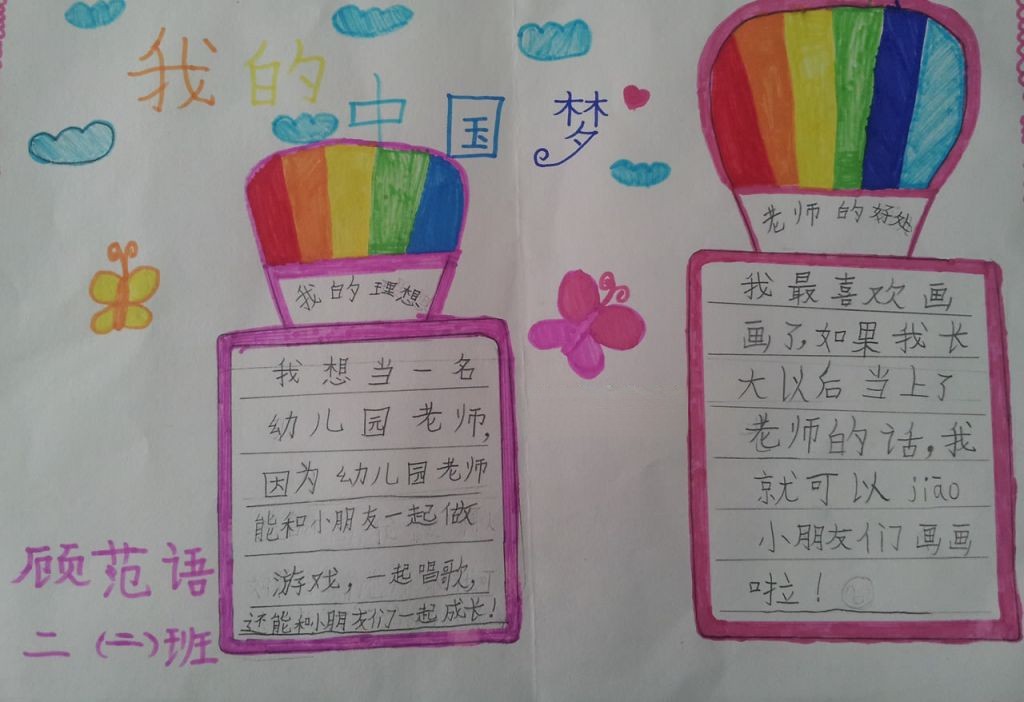 我的中国梦
我的理想
我想当一名
幼儿园老师,
因为幼儿园老师
能和小朋友一起做
游戏，一起唱歌,
还能和小朋友们一起成长!
老师的好处
我最喜欢画
画了,如果我长
大以后当上了
老师的话,我
就可以jiāo
小朋友们画画
啦!
顾范语
二（二）班